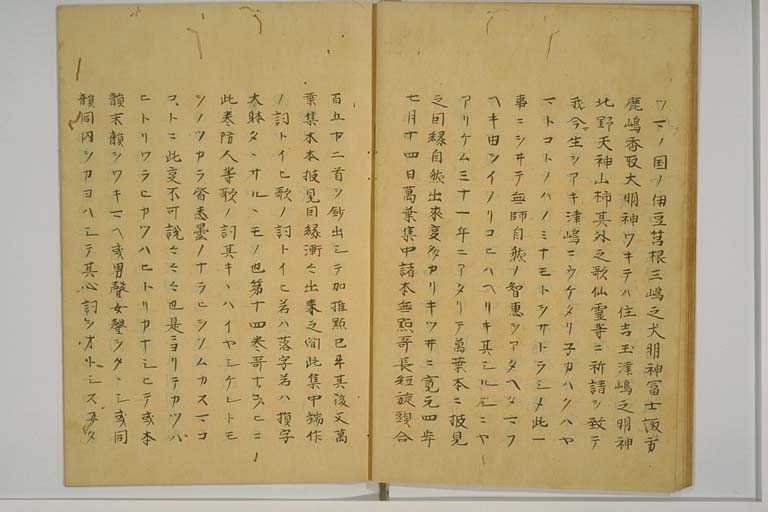 ツマノ国ノ伊豆筥根三嶋之大明神冨士諏方
鹿嶋香取大明神ワキテハ住吉玉津嶋之明神
北野天神山柿其外之歌仙霊等ニ祈請ヲ致テ
我今生ヲアキ津嶋ニウケタリ子カハクハヤ
マトコトノハノミナモトヲサトラシメ此一
事ニヲキテ無師自然ノ智恵ヲアタヘタマフ
ヘキ由ンイノリコヒハヘリキ其シルシニヤ
アリケム三十一年ニアタリテ萬葉本ニ披見
之因縁自然出來変多カリキツ井ニ寛元四年
七月十四日萬葉集中諸本無點哥長短旋頭合
百五十二首ヲ鈔出シテ加推點已畢其後又萬
葉集不本披見因縁漸々出来之間此集中端作
ノ詞トイヒ歌ノ詞トイヒ若ハ落字若ハ損字
太躰タヽサルヽモノ也第十四巻哥
此巻防人等歌ノ詞其キヽハイヤシケレトモ
ヲノツカラ皆悉曇ノナラヒヲソムカスマコ
コトニ此変不可説々々々也是ニヨリテカツハ
ヒトリワラヒカツハヒトリカナシヒテ或本
韻末韻ヲワキマヘ或男聲女聲ヲタヽシ或同
韻同内ヲカヨハシテ其心詞ヲ